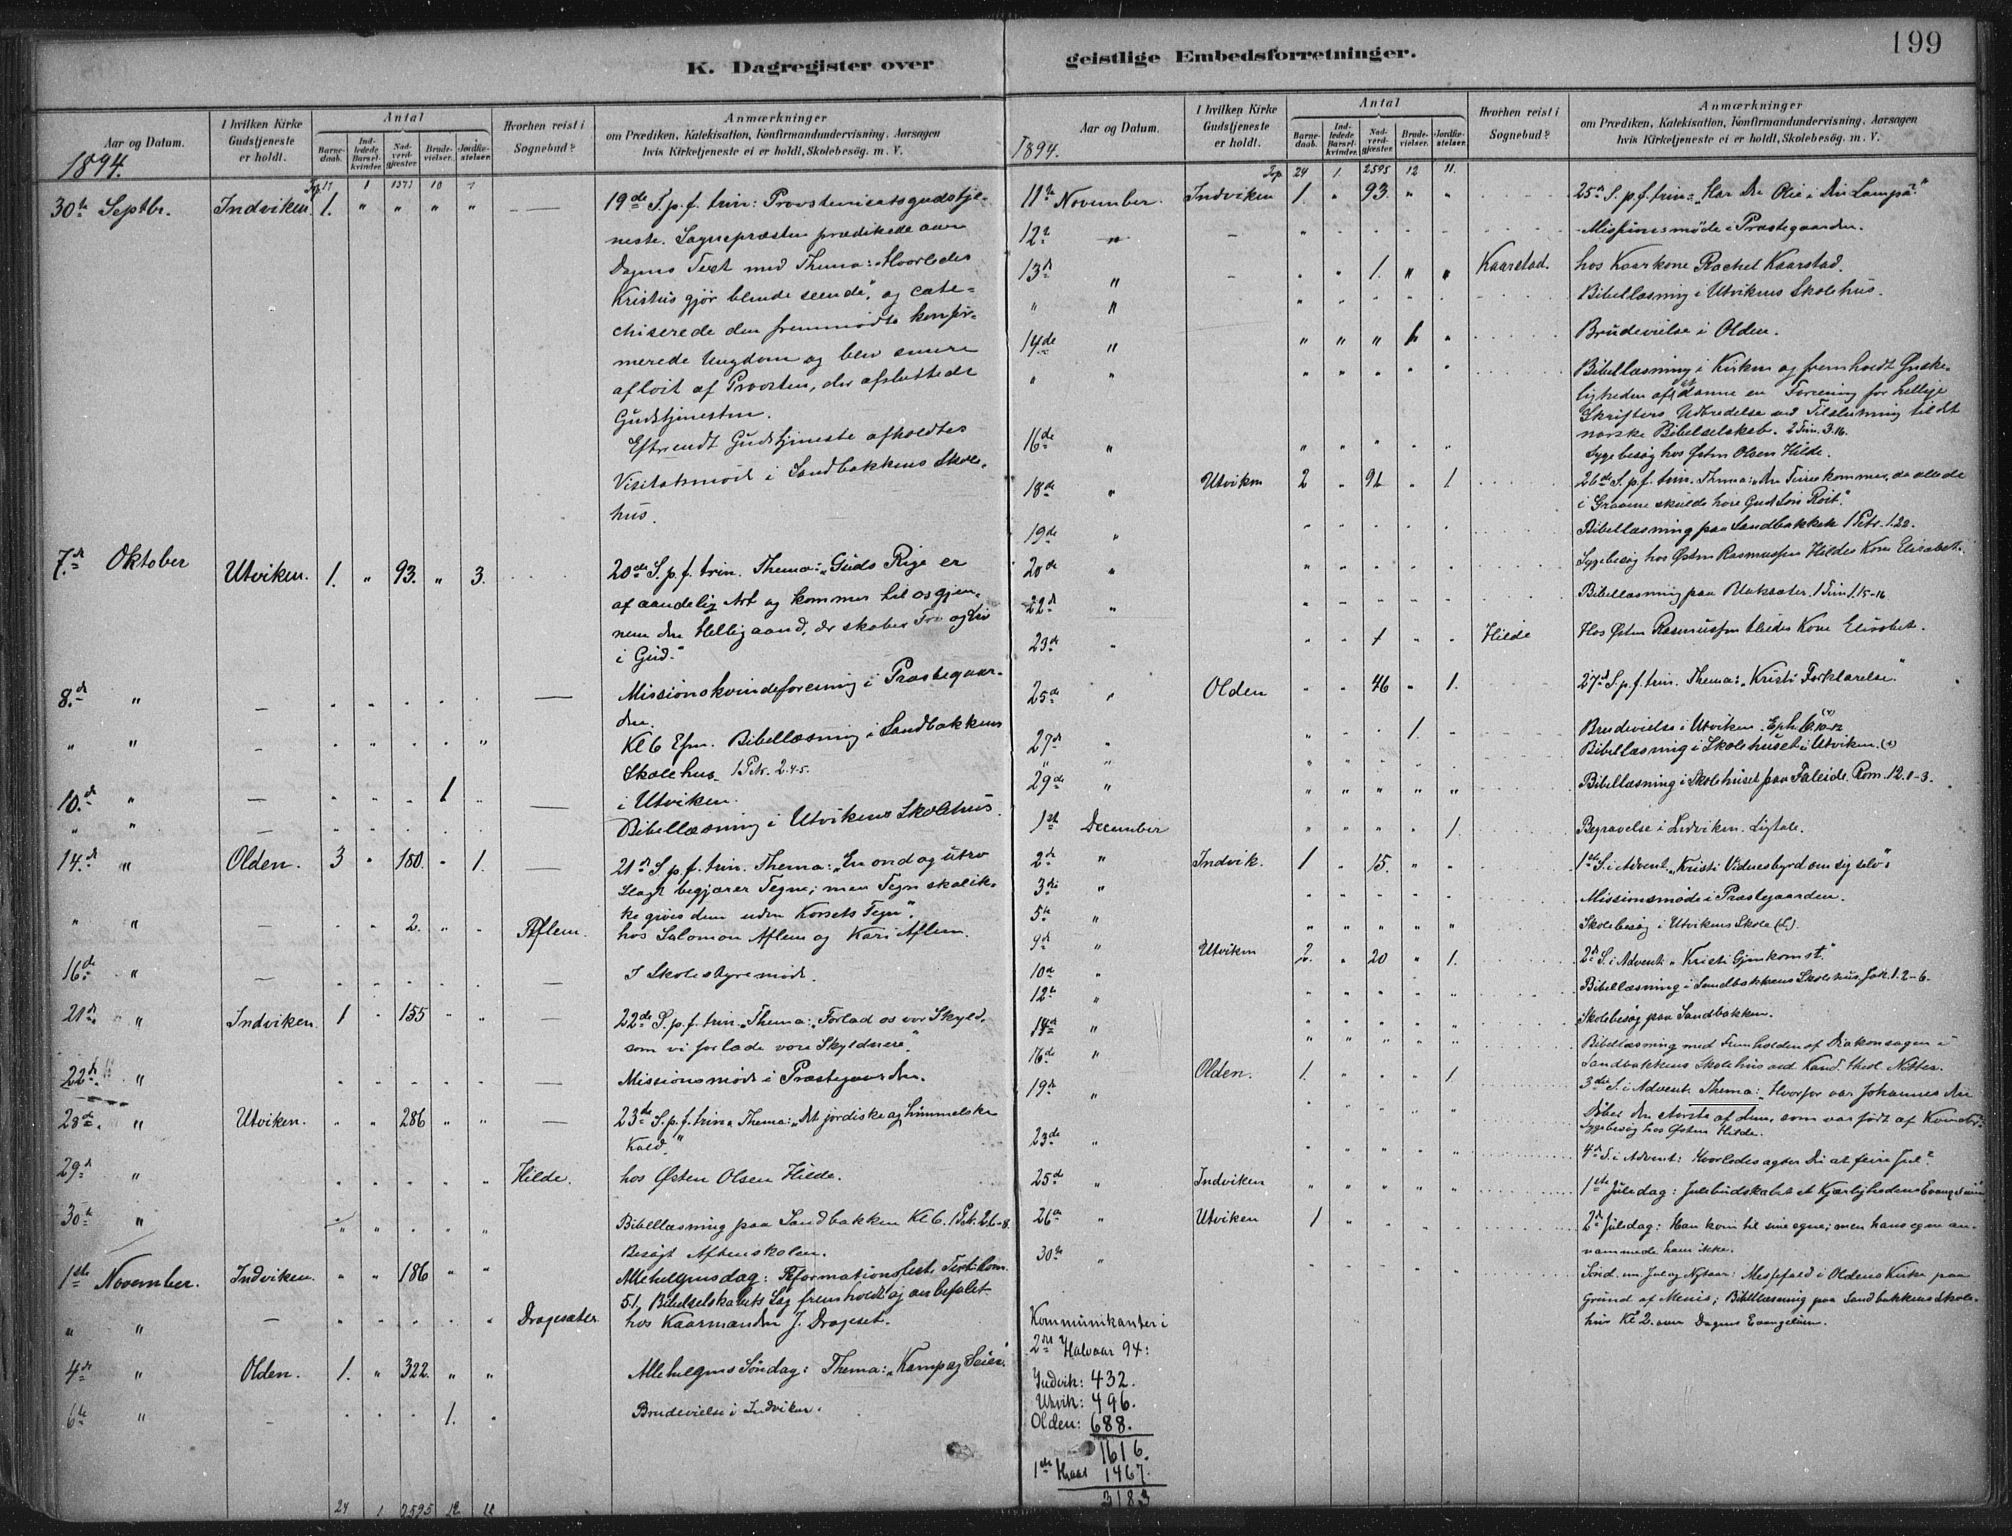 199
K. Dagregister over geistlige Embedsforretninger.
Aar og Datum.
I hvilken Kirke Gudstjeneste er holdt.
Antal
Barnedaab.
Indledede Barselkvinder.
Nadverdgjæster
Brudevielser.
Jordfæstelser.
Hvorhen reist i Sognebud?
Anmærkninger
om Prædiken, Katekisation, Konfirmandundervisning, Aarsagen
hvis Kirketjeneste ei er holdt, Skolebesøg. m. V.
1894.
30te Septbr. Indviken 1. " " " " — 19de S. p. f. trin: Provstevisitatsgudstje-
neste. Sognepræsten prædikede over
Dagens Text med Thema: Hvorledes
Kristus gjør blinde seende", og cate-
chiserede den fremmødte konfir-
merede Ungdom og blev senere
afløst af Provsten, der afsluttede
Gudstjenesten.
Efter endt Gudstjeneste afholdtes
Visitatsmøde i Sandbakkens Skole-
hus.
7de Oktober Utviken. 1. " 93. " 3. 20de S. p. f. trin. Thema: "Guds Rige er
af aandelig Art og kommer til os gjen-
nem den Helligaand, der skaber Tro og Liv
i Gud."
8de " — Missionskvindeforening i Præstegaar-
den.
" " — Kl 6 Efm. Bibellæsning i Sandbakkens
Skolehus. 1 Petr. 2.4-5.
10de " — 1 — i Utviken.
" " — Bibellæsning i Utvikens Skolehus.
14de " Olden. 3 " 180. " 1. — 21de S. p. f. trin. Thema: "En ond og utro
Slægt begjærer Tegn; men Tegn skal ik-
ke gives dem uden Korsets Tegn".
" " — 2. " Aflem. hos Salomon Aflem og Kari Aflem.
16de " — I Skolestyremøde.
21de " Indviken. 1 " 155 " " — 22de S. p. f. trin. Thema: "Forlad os vor Skyld,
som vi forlade vore Skyldnere".
22de " — Missionsmøde i Præstegaarden.
28de " Utviken. " " 286 " " — 23de S. p. f. trin. Thema: "Det jordiske og himmelske
Kald."
29de " Hilde. hos Østen Olsen Hilde.
30te " Bibellæsning paa Sandbakken Kl 6. 1 Petr. 2.6-8.
Besøgt Aftenskolen.
1ste November. Indviken. " " 186 " " Allehelgensdag: Reformationsfest. Text: Rom.
5.1, Bibelselskabets Sag fremholdt og anbefalet.
" " — Drageæter hos Kaarmanden J. Drageset.
4de " Olden. 1. " 322. " " Allehelgens Søndag: Thema: "Kamp og Seier."
6te " — 1. " Brudevielse i Indviken.
24 1 2595 12 11
Aar og Datum.
I hvilken Kirke Gudstjeneste er holdt.
Antal
Barnedaab.
Indledede Barselkvinder.
Nadverdgjæster.
Brudevielser.
Jordfæstelser.
Hvorhen reist i Sognebud?
Anmærkninger
om Prædiken, Katekisation, Konfirmandundervisning, Aarsagen
hvis Kirketjeneste ei er holdt, Skolebesøg. m. V.
1894.
Trp. 24 1. 2595 12 11.
11te November. Indviken 1. " 93. " " 25de S. p. f. trin: "Har Du Olie i Din Lampe?"
12te " — Missionsmøde i Præstegaarden.
13de " — 1. " " Kaarstad. hos Kaarkone Rachel Kaarstad.
" " Bibellæsning i Utvikens Skolehus.
14de " " " " 1. " Brudevielse i Olden.
" " Bibellæsning i Kirken og fremholdt Ønske-
ligheden af at danne en Forening for hellige
Skrifters Udbredelse ved Tilslutning til det
norske Bibelselskab. 2 Tim. 3.16.
16de " Sygebesøg hos Østen Olsen Hilde.
18de " Utviken 2 " 91 " 1 26de S. p. f. trin. Thema: "Den Time kommer, da alle de
i Gravene skulde høre Guds Søns Røst."
19de " Bibellæsning paa Sandbakken 1 Petr. 1.22.
20de " Sygebesøg hos Østen Rasmussen Hildes Kone Elisabet.
22de " Bibellæsning paa 1 Tim 1.15-16
23de " 1 " " Hilde Hos Østen Rasmussen Hildes Kone Elisabet.
25de " Olden " " 46 " 1. 27de S. p. f. trin. Thema: "Kristi Forklarelse."
27de " 1. " Brudevielse i Utviken. Eph. 6.10-12
" " Bibellæsning i Skolehuset i Utviken.
29de " Bibellæsning i Skolehuset paa Faleide. Rom. 12.1-3.
1ste December 1. Begravelse i Indviken. Ligtale.
2de " Indvik. 1 " 15. " " 1ste S. i Advent. "Kristi Vidnesbyrd om sig selv".
3die " Missionsmøde i Præstegaarden.
5te " Skolebesøg i Utvikens Skole
9de " Utviken 2. " 20 " 1. 2den S. i Advent: "Kristi Gjenkomst."
10de " Bibellæsning i Sandbakkens Skolehus, Jak. 1.2-6.
12te " Skolebesøg paa Sandbakken.
14de " Bibellæsning med Fremholden af Diakonsagen i
Sandbakkens Skolehus ved Kand. theol.
16de " Olden. 1. " " " 1. 3die S. i Advent. Thema: "Hvorfor var Johannes den
Døber den største af dem, som var født af Kvinder?
19de " Sygebesøg hos Østen Hilde.
23de " 4de S. i Advent: Hvorledes agter Du at feire Jul?
25de " Indviken 1ste Juledag: Julebudskabet et Kjærlighedens Evangelium
26de " Utviken 1 2den Juledag: Han kom til sine egne; men hans egne an-
nammede ham ikke.
30te " Sønd. m. Jul og Nytaar: Messefald i Oldens Kirke paa
Grund af Menis; Bibellæsning paa Sandbakkens Skole-
hus Kl 2. over Dagens Evangelium.
Kommunikanter i
2det Halvaar 94:
Indvik: 432.
Utvik: 496.
Olden: 688.
1616.
1ste Halv 1467.
3183